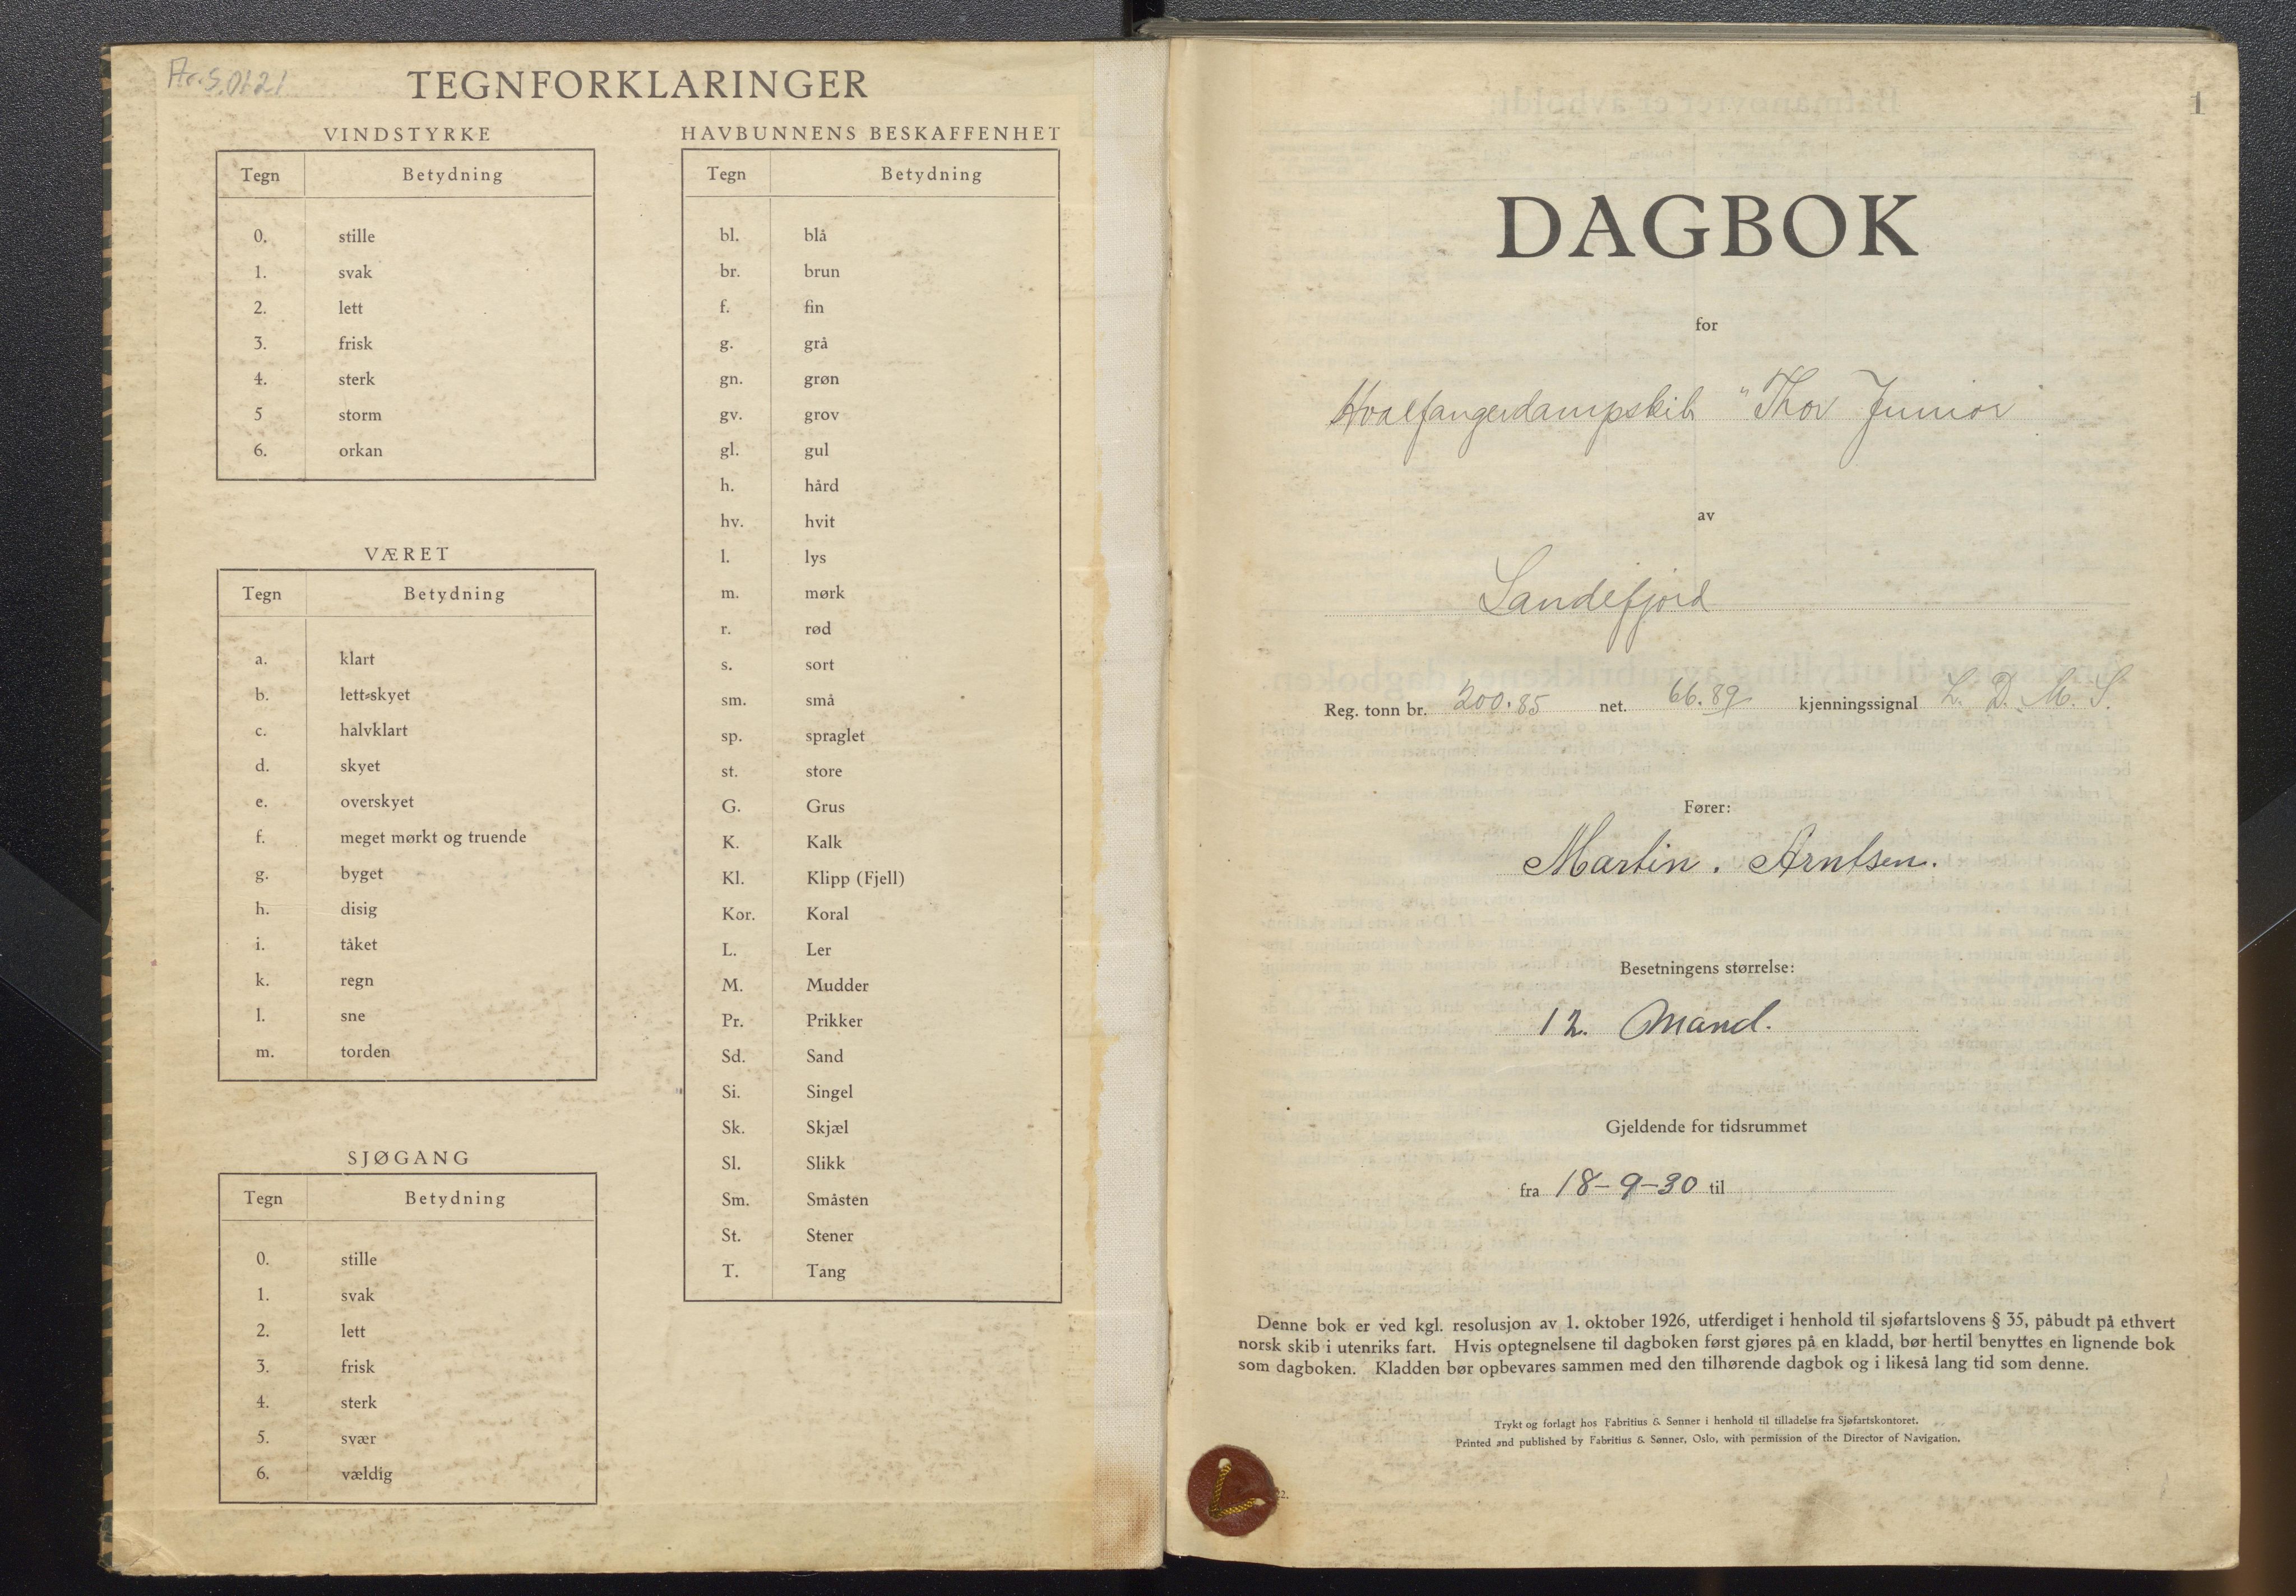 Ar.S.0121
TEGNFORKLARINGER
VINDSTYRKE
Tegn Betydning
0. stille
1. svak
2. lett
3. frisk
4. sterk
5 storm
6. orkan
VÆRET
Tegn Betydning
a. klart
b. lett-skyet
c. halvklart
d. skyet
e. overskyet
f. meget mørkt og truende
g. byget
h. disig
i. tåket
k. regn
l. sne
m. torden
SJØGANG
Tegn Betydning
0. stille
1. svak
2. lett
3. frisk
4. sterk
5. svær
6. vældig
HAVBUNNENS BESKAFFENHET
Tegn Betydning
bl. blå
br. brun
f. fin
g. grå
gn. grøn
gv. grov
gl. gul
h. hård
hv. hvit
l. lys
m. mørk
r. rød
s. sort
sm. små
sp. spraglet
st. store
G. Grus
K. Kalk
Kl. Klipp (Fjell)
Kor. Koral
L. Ler
M. Mudder
Pr. Prikker
Sd. Sand
Si. Singel
Sk. Skjæl
Sl. Slikk
Sm. Småsten
St. Stener
T. Tang
1
DAGBOK
for
Hvalfangerdampskib "Thor Junior"
av
Sandefjord
Reg. tonn br. 200.85 net. 66.89 kjenningssignal L. D. M. S.
Fører:
Martin. Arntsen.
Besetningens størrelse:
12. Mand.
Gjeldende for tidsrummet
fra 18-9-30 til
Denne bok er ved kgl. resolusjon av 1. oktober 1926, utferdiget i henhold til sjøfartslovens § 35, påbudt på ethvert
norsk skib i utenriks fart. Hvis optegnelsene til dagboken først gjøres på en kladd, bør hertil benyttes en lignende bok
som dagboken. Kladden bør opbevares sammen med den tilhørende dagbok og i likeså lang tid som denne.
Trykt og forlagt hos Fabritius & Sønner i henhold til tilladelse fra Sjøfartskontoret.
Printed and published by Fabritius & Sønner, Oslo, with permission of the Director of Navigation.